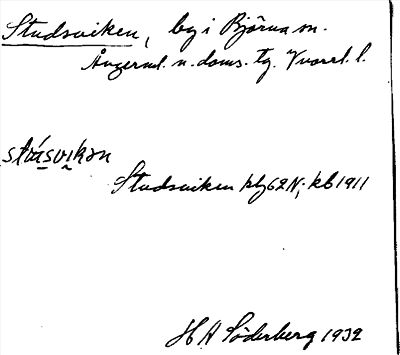 Studsviken, by i Björna sn.
Ångerml. n. doms. tg. Vvorrl. l.
stásvikən
Studsviken kbl 62 N; kb 1911
H A Söderberg 1932